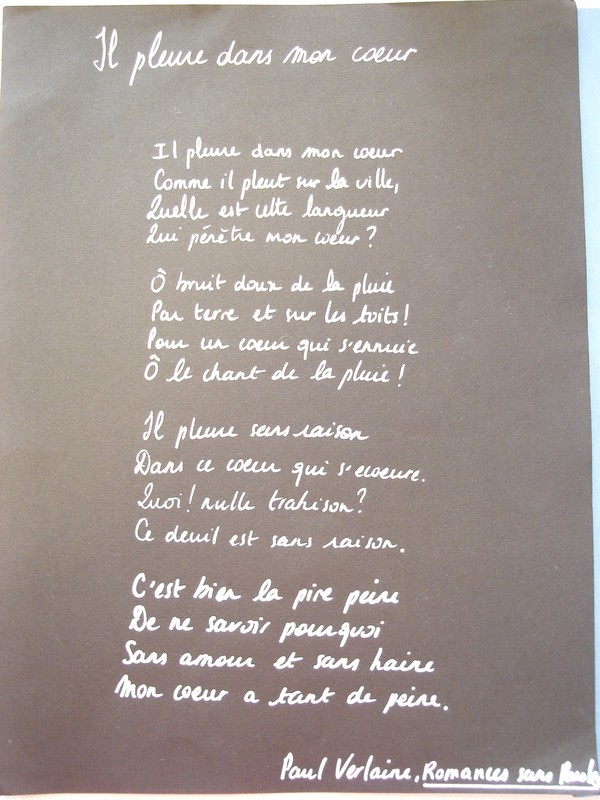 Il pleure dans mon coeur
Il pleure dans mon coeur
Comme il pleut sur la ville,
Quelle est cette langueur
Qui pénètre mon coeur ?
Ô bruit doux de la pluie
Par terre et sur les toits !
Pour un coeur qui s'ennuie
Ô le chant de la pluie !
Il pleure sans raison
Dans ce coeur qui s'ecoeure.
Quoi ! nulle trahison ?
Ce deuil est sans raison.
C'est bien la pire peine
De ne savoir pourquoi
Sans amour et sans haine
Mon coeur a tant de peine.
Paul Verlaine, Romances sans Paroles